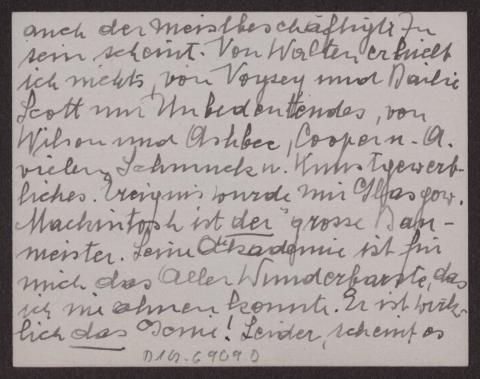 auch der meistbeschäftigte zu
sein scheint. Von Walton erhielt
ich nichts, von Voysey und Bailie
Scott nur Unbedeutendes, von
Wilson und Ashbee, Cooper u. A.
vielen Schmuck u. Kunstgewerb-
liches. Ereignis wurde mir Glasgow.
Mackintosh ist der grosse Bau-
meister. Seine Akademie ist für
mich das Aller Wunderbarste, das
ich nie ahnen konnte. Er ist wirk-
lich das Genie! Leider, scheint es